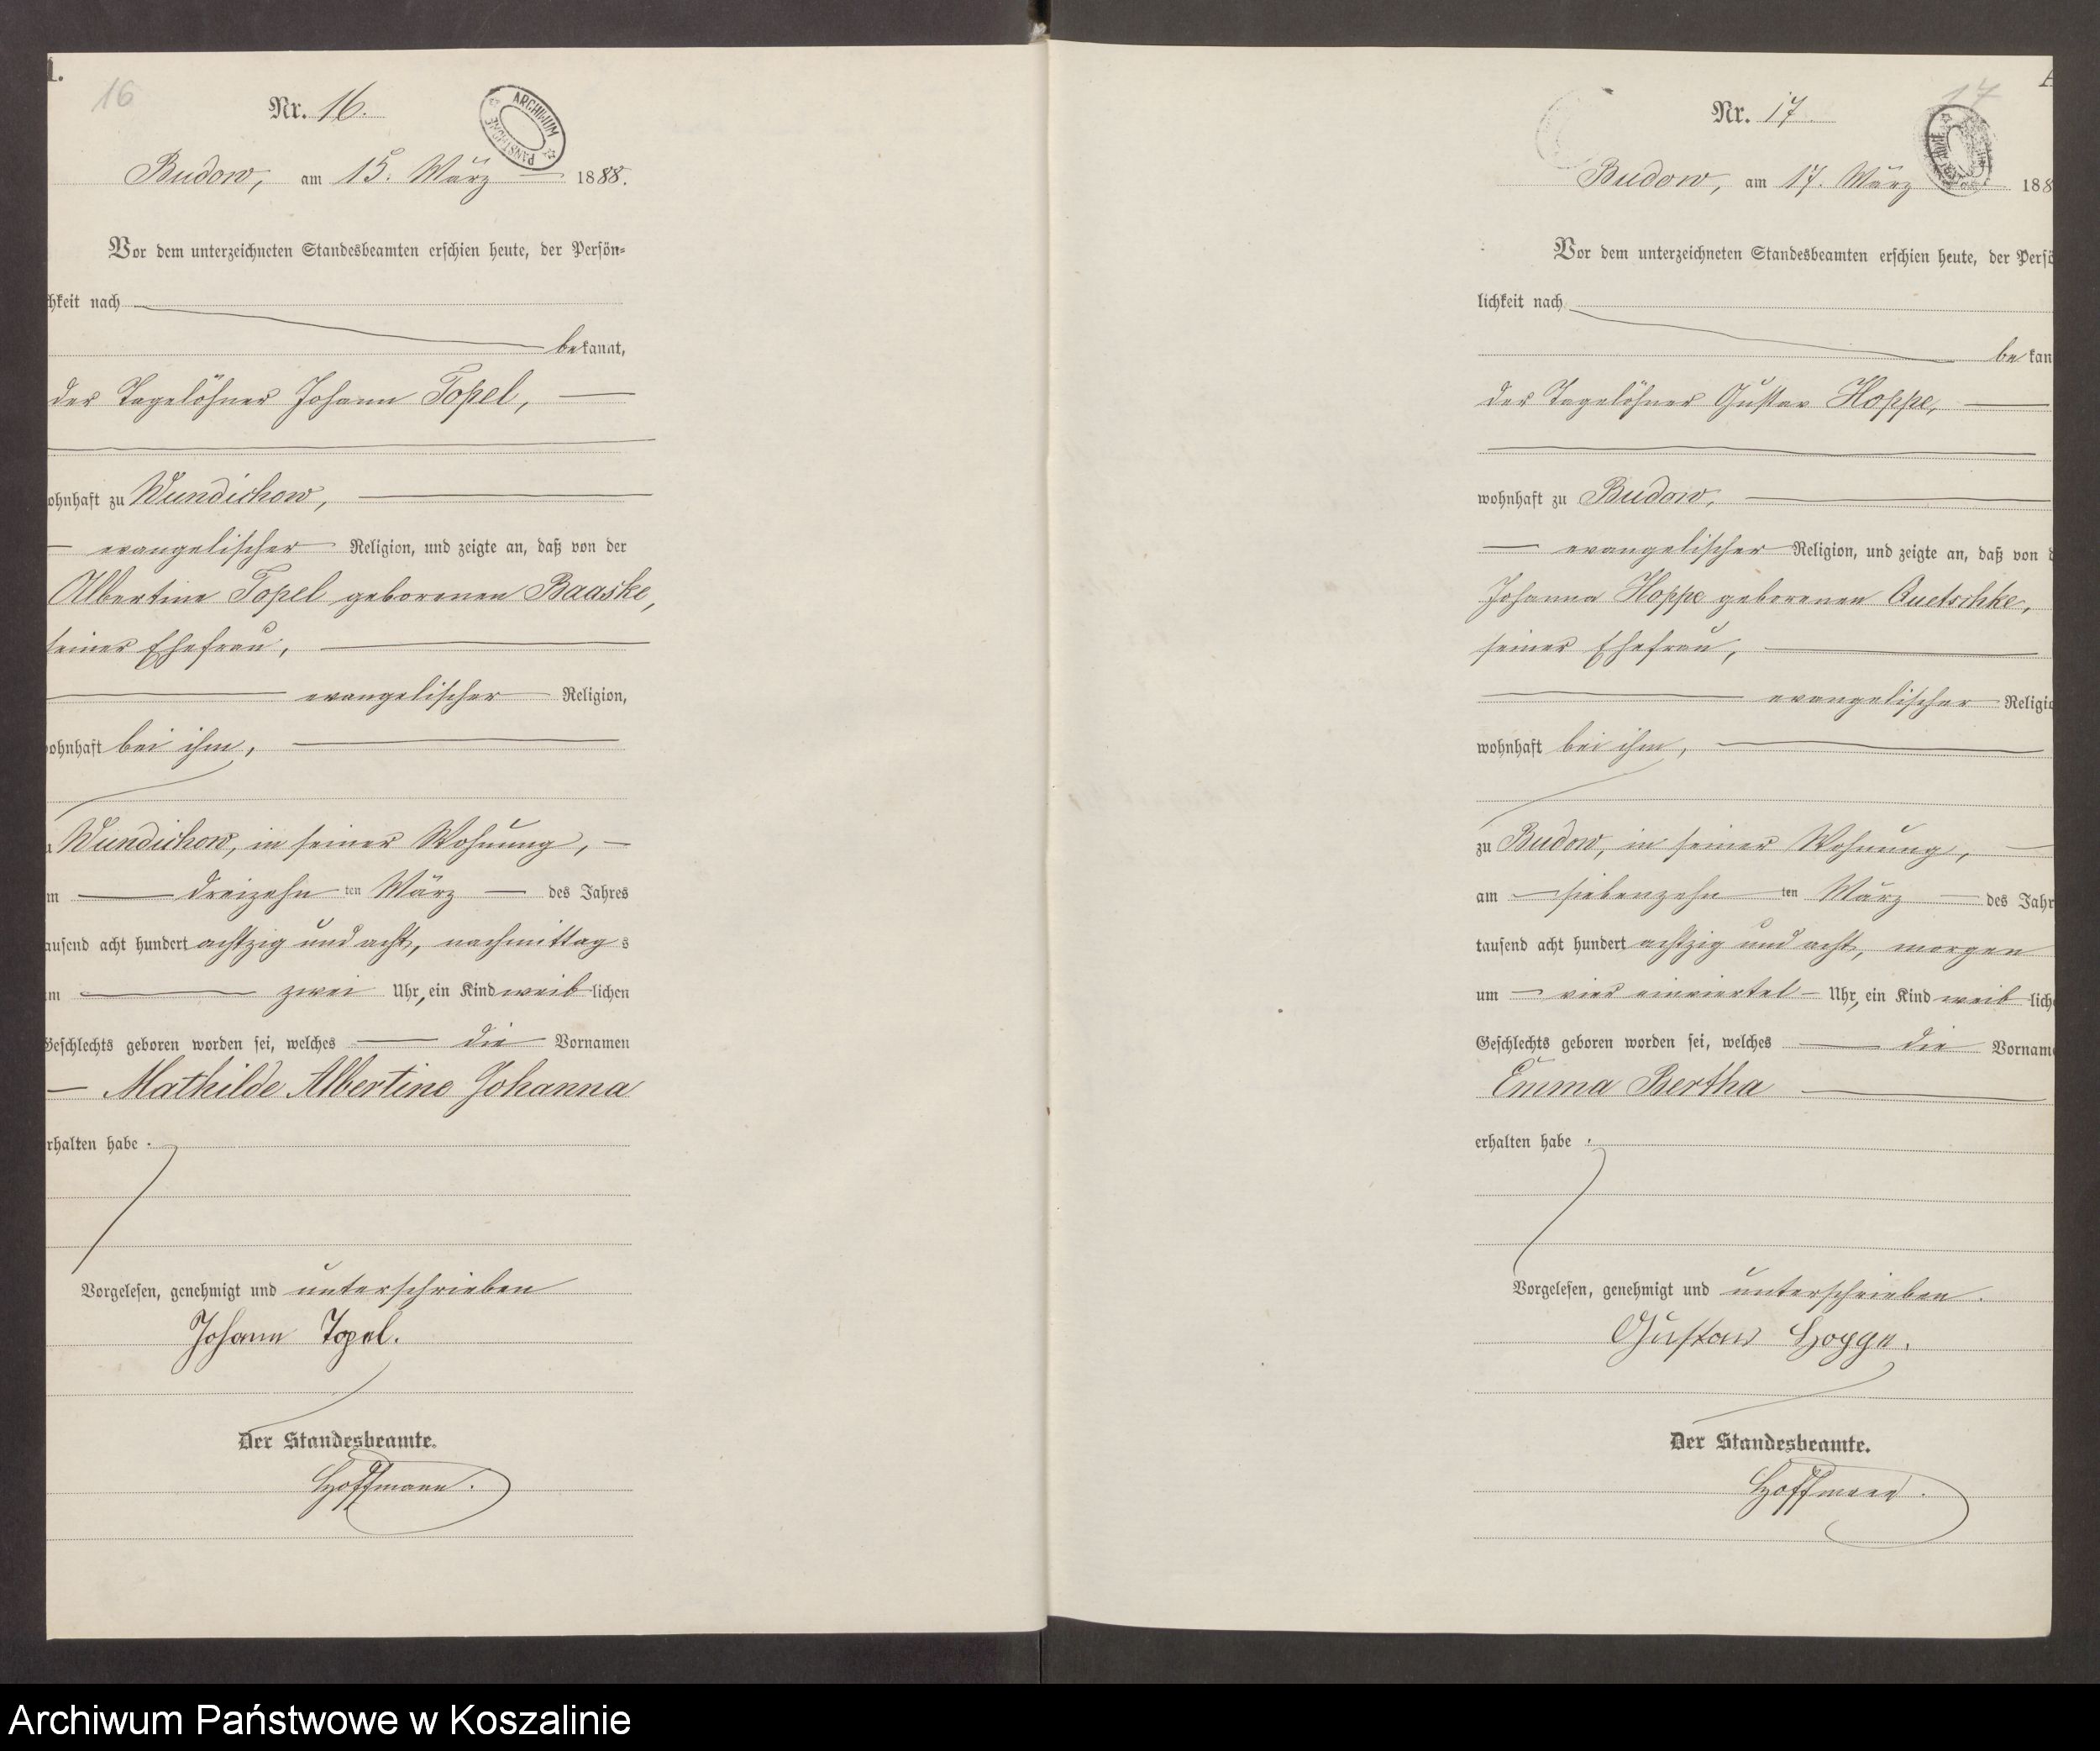 1.
16
Nr. 16.
ARCHIWUM PAŃSTWOWE
Budow, am 15. März 1888.
Vor dem unterzeichneten Standesbeamten erschien heute, der Persön-
hkeit nach
bekannt,
der Tagelöhner Johann Topel,
ohnhaft zu Wundichow,
evangelischer Religion, und zeigte an, daß von der
Albertine Topel geborenen Baaske,
seiner Ehefrau,
evangelischer Religion,
ohnhaft bei ihm,
Wundichow, in seiner Wohnung,
m dreizehn ten März des Jahres
ausend acht hundert achtzig und acht, nachmittags
m zwei Uhr, ein Kind weiblichen
Geschlechts geboren worden sei, welches die Vornamen
Mathilde Albertine Johanna
rhalten habe.
Vorgelesen, genehmigt und unterschrieben
Johann Topel.
Der Standesbeamte.
Hoffmann.
17
Nr. 17.
Budow, am 17. März 188
Vor dem unterzeichneten Standesbeamten erschien heute, der Persö
lichkeit nach
be kan
der Tagelöhner Gustav Hoppe,
wohnhaft zu Budow,
evangelischer Religion, und zeigte an, daß von d
Johanna Hoppe geborenen Quetschke,
seiner Ehefrau,
evangelischer Religio
wohnhaft bei ihm,
zu Budow, in seiner Wohnung,
am siebenzehn ten März des Jahr
tausend acht hundert achtzig und acht, morgen
um vier einviertel Uhr, ein Kind weiblich
Geschlechts geboren worden sei, welches die Vorname
Emma Bertha
erhalten habe.
Vorgelesen, genehmigt und unterschrieben.
Gustav Hoppe.
Der Standesbeamte.
Hoffmann.
Archiwum Państwowe w Koszalinie